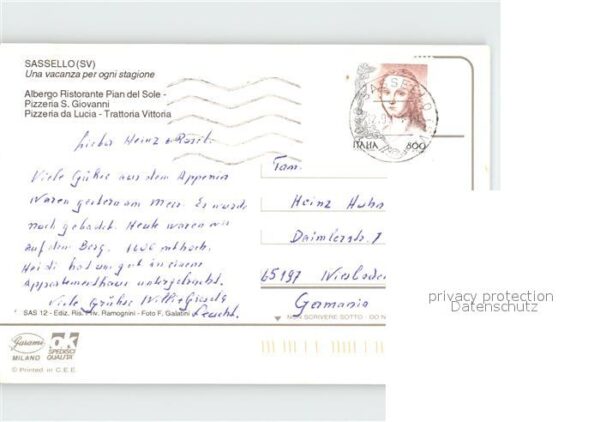 SASSELLO (SV)
Una vacanza per ogni stagione
Albergo Ristorante Pian del Sole -
Pizzeria S. Giovanni
Pizzeria da Lucia - Trattoria Vittoria
SASSELLO
ITALIA 800
Lieber Heinz +
Viele Grüße aus dem Appenin
Waren gestern am Meer. Es wurde
noch gebadet. Heute waren wir
auf dem Berg.
Heidi hat uns gut in einem
Appartementhaus untergebracht.
Viele Grüße Willi + Gisela
Fam.
Heinz Huhn
Daimlerstr. 7
65197 Wiesbaden
Germania
SAS 12 - Ediz. Ris. Priv. Ramognini - Foto F. Galatini
NON SCRIVERE SOTTO - DO N
Garami
MILANO
OK
SPEDISCI
QUALITÀ
© Printed in C.E.E.
privacy protection
Datenschutz